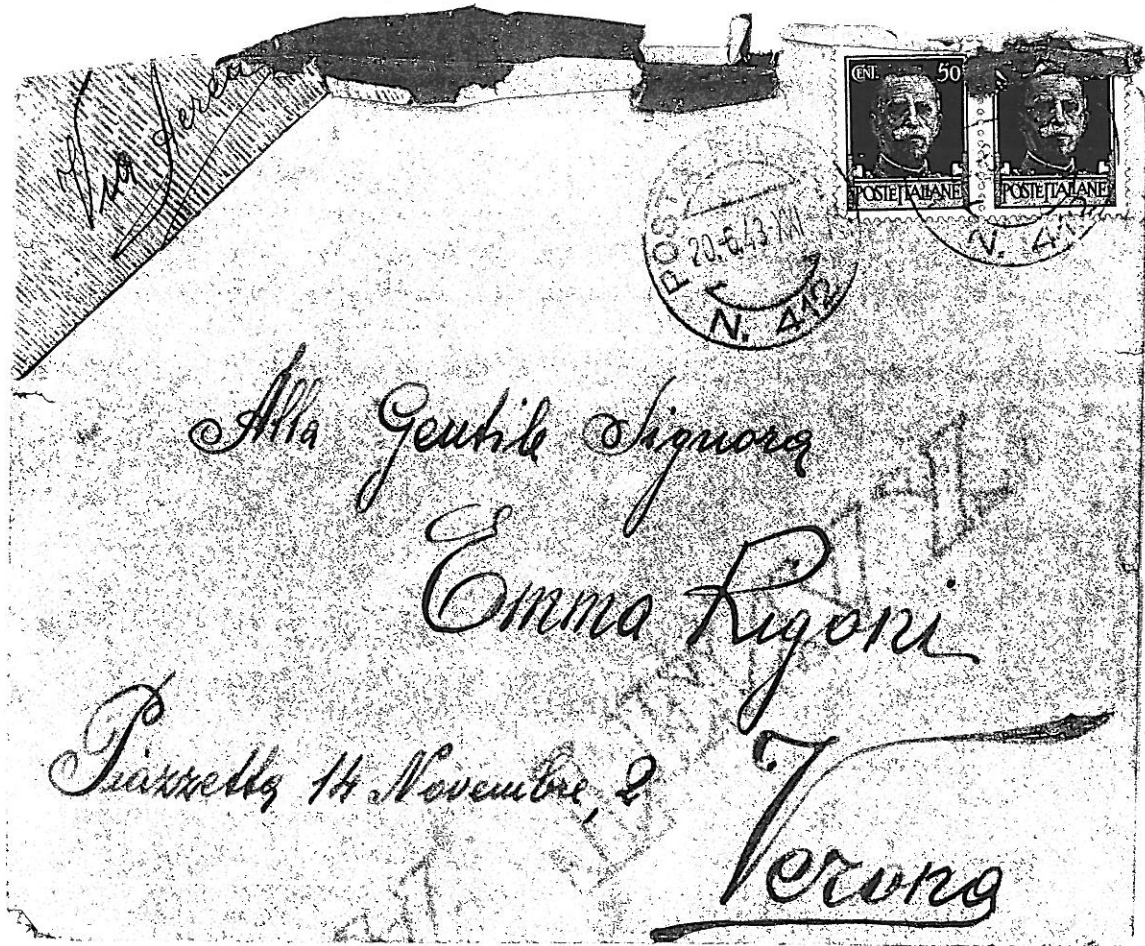 Via Aerea
CENT. 50
POSTE ITALIANE
POSTE ITALIANE
POSTA
20.6.43-XXI
N. 412
N. 412
Alla Gentile Signora
Emma Rigoni
Piazzetta 14 Novembre, 2
Verona